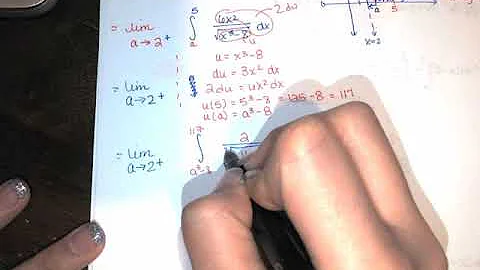 = lim a→2⁺ ∫ₐ⁵ 6x²/√(x³-8) dx 2du
u
u = x³-8
du = 3x² dx
= lim a→2⁺ 2du = 6x² dx
u(5) = 5³-8 = 125-8 = 117
u(a) = a³-8
= lim a→2⁺ ∫ₐ³₋₈¹¹⁷ 2
2 5
x=2